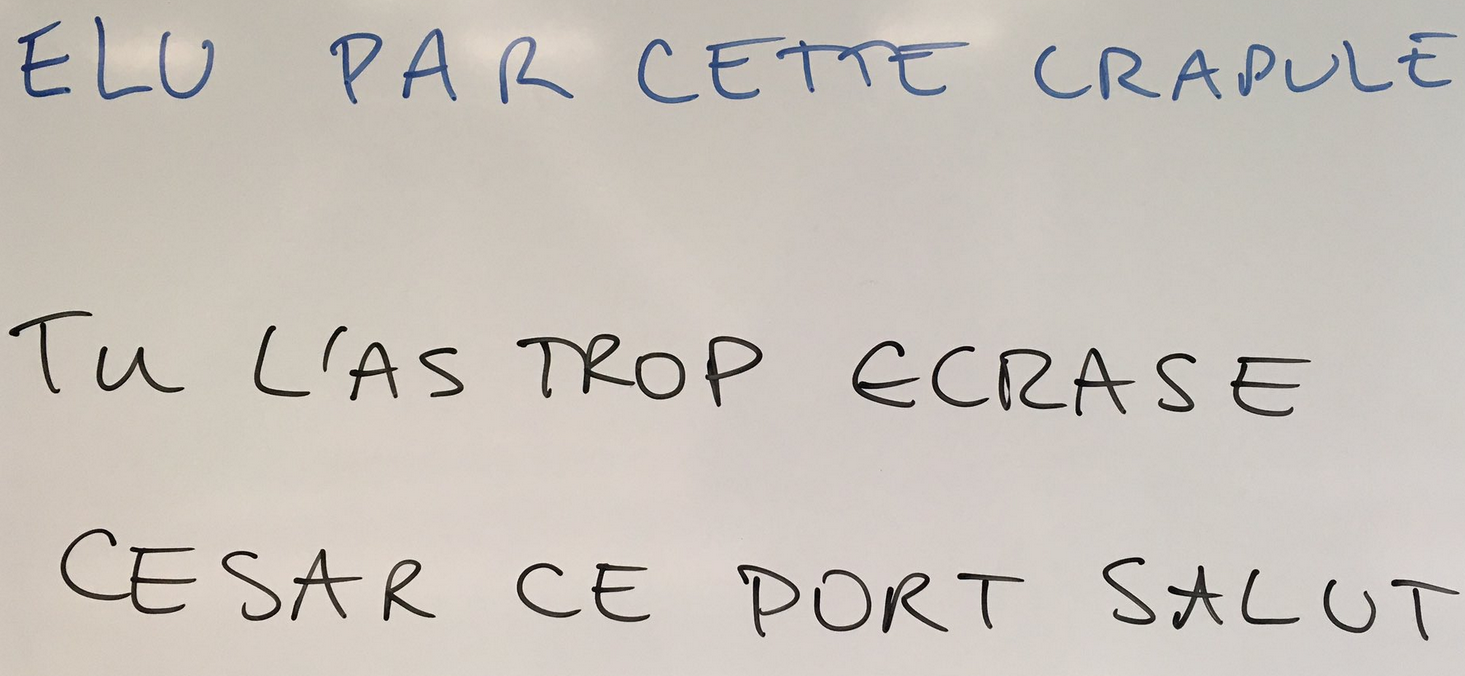 ELU PAR CETTE CRAPULE
TU L'AS TROP ECRASE
CESAR CE PORT SALUT